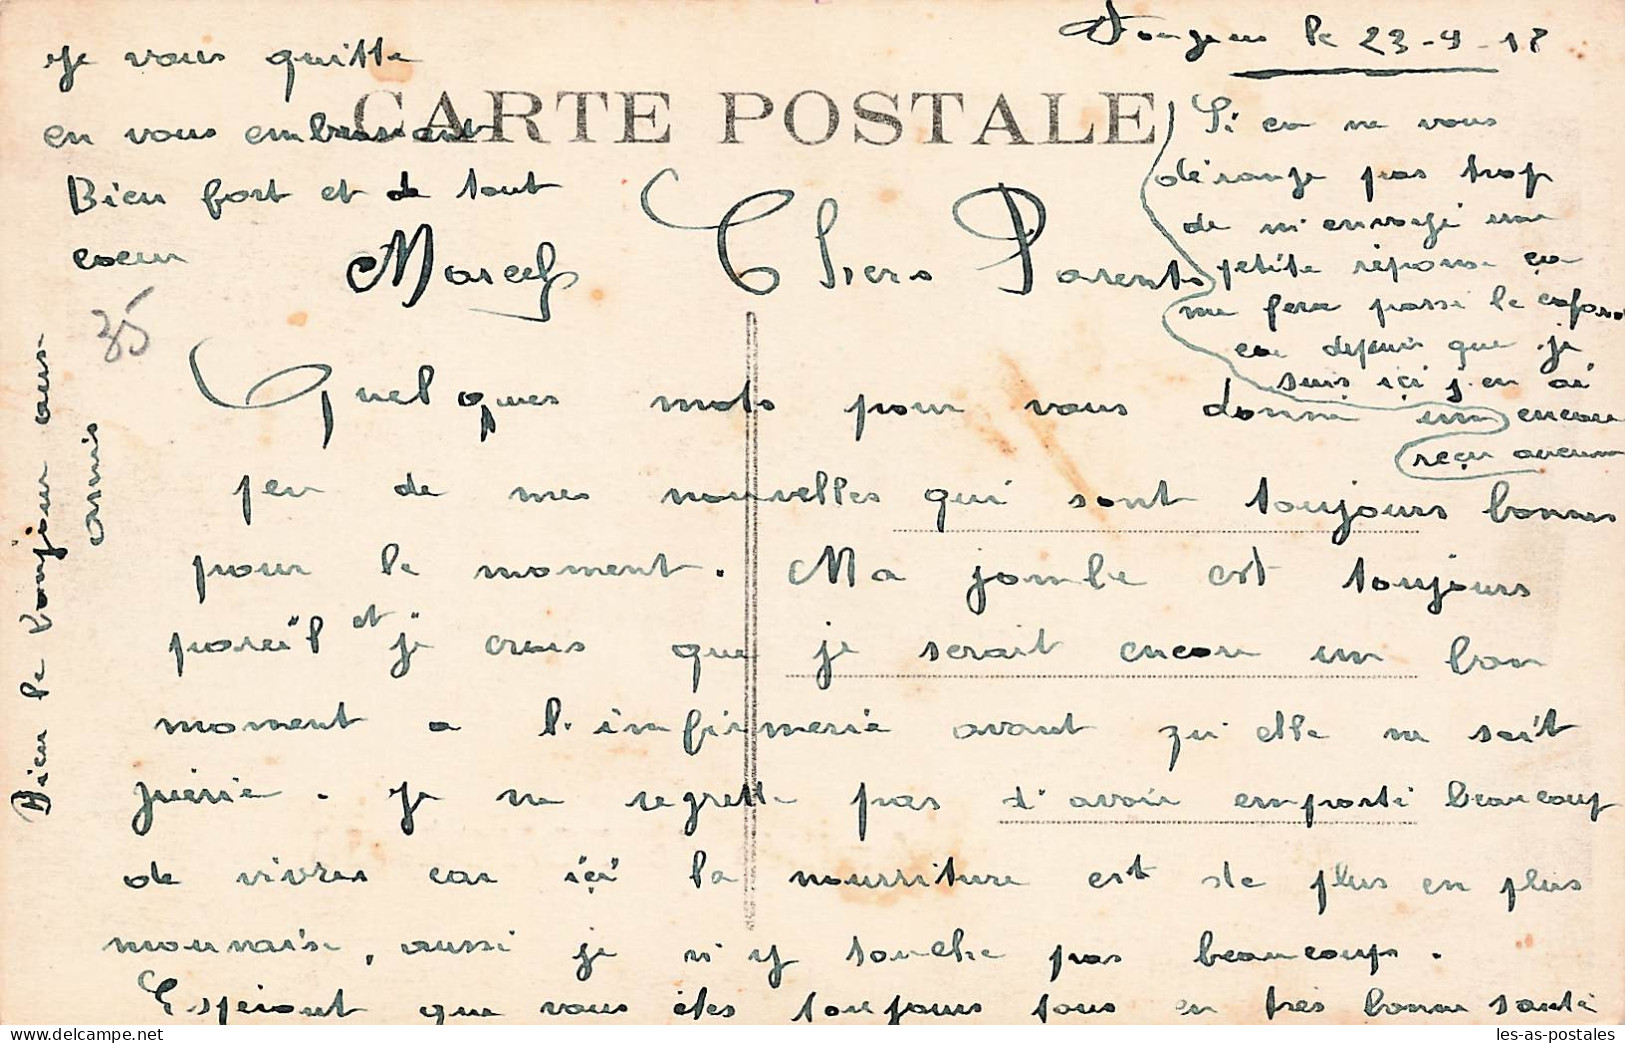 le 23-9-18
CARTE POSTALE
Chers Parents
Quelques mots pour vous donné un
peu de mes nouvelles qui sont toujours bonnes
pour le moment. Ma jambe est toujours
pareil et je crois que je serait encore un bon
moment a l'infirmerie avant qu'elle ne soit
guérie. Je ne regrette pas d'avoir emporté beaucoup
de vivres car içi la nourriture est de plus en plus
mauvaise, aussi je n'y touche pas beaucoup.
Espérant que vous êtes toujours tous en très bonne santé
je vous quitte
en vous embrassant
Bien fort et de tout
coeur
Marcel
Si ca ne vous
dérange pas trop
de m'envoyé une
petite réponse ça
me fera passé le cafard
car depuis que je
suis içi j'en ai
encore
reçu aucune
Bien le bonjour aux
amis
35
delcampe.net
les-as-postales